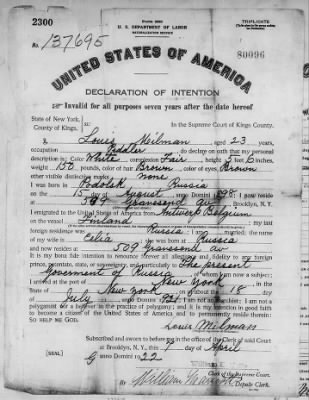 2300
Form 2203
U. S. DEPARTMENT OF LABOR
NATURALIZATION SERVICE
TRIPLICATE
No. 137695
80096
UNITED STATES OF AMERICA
DECLARATION OF INTENTION
Invalid for all purposes seven years after the date hereof
State of New York,
County of Kings, ss:
In the Supreme Court of Kings County.
I, Louis Milman, aged 23 years,
occupation Peddler, do declare on oath that my personal
description is: Color White, complexion Fair, height 5 feet 6 inches,
weight 150 pounds, color of hair Brown, color of eyes Brown
other visible distinctive marks none
I was born in Podolsk Russia
on the 15 day of August, anno Domini 1898; I now reside
at 509 Av., Brooklyn, N. Y.
I emigrated to the United States of America from Antwerp Belgium
on the vessel Finland; my last
foreign residence was Russia; I am married; the name
of my wife is Celia; she was born at Russia
and now resides at 509 Av.
It is my bona fide intention to renounce forever all allegiance and fidelity to any foreign
prince, potentate, state, or sovereignty, and particularly to The present
Government of Russia, of whom I am now a subject;
I arrived at the port of New York, in the
State of New York, on or about the 18 day
of July, anno Domini 1921; I am not an anarchist; I am not a
polygamist nor a believer in the practice of polygamy; and it is my intention in good faith
to become a citizen of the United States of America and to permanently reside therein:
SO HELP ME GOD.
Louis Milman
Subscribed and sworn to before me in the office of the Clerk of said Court
at Brooklyn, N. Y., this 7 day of April
[SEAL] anno Domini 1922
Clerk of the Supreme Court.
By William
Deputy Clerk.